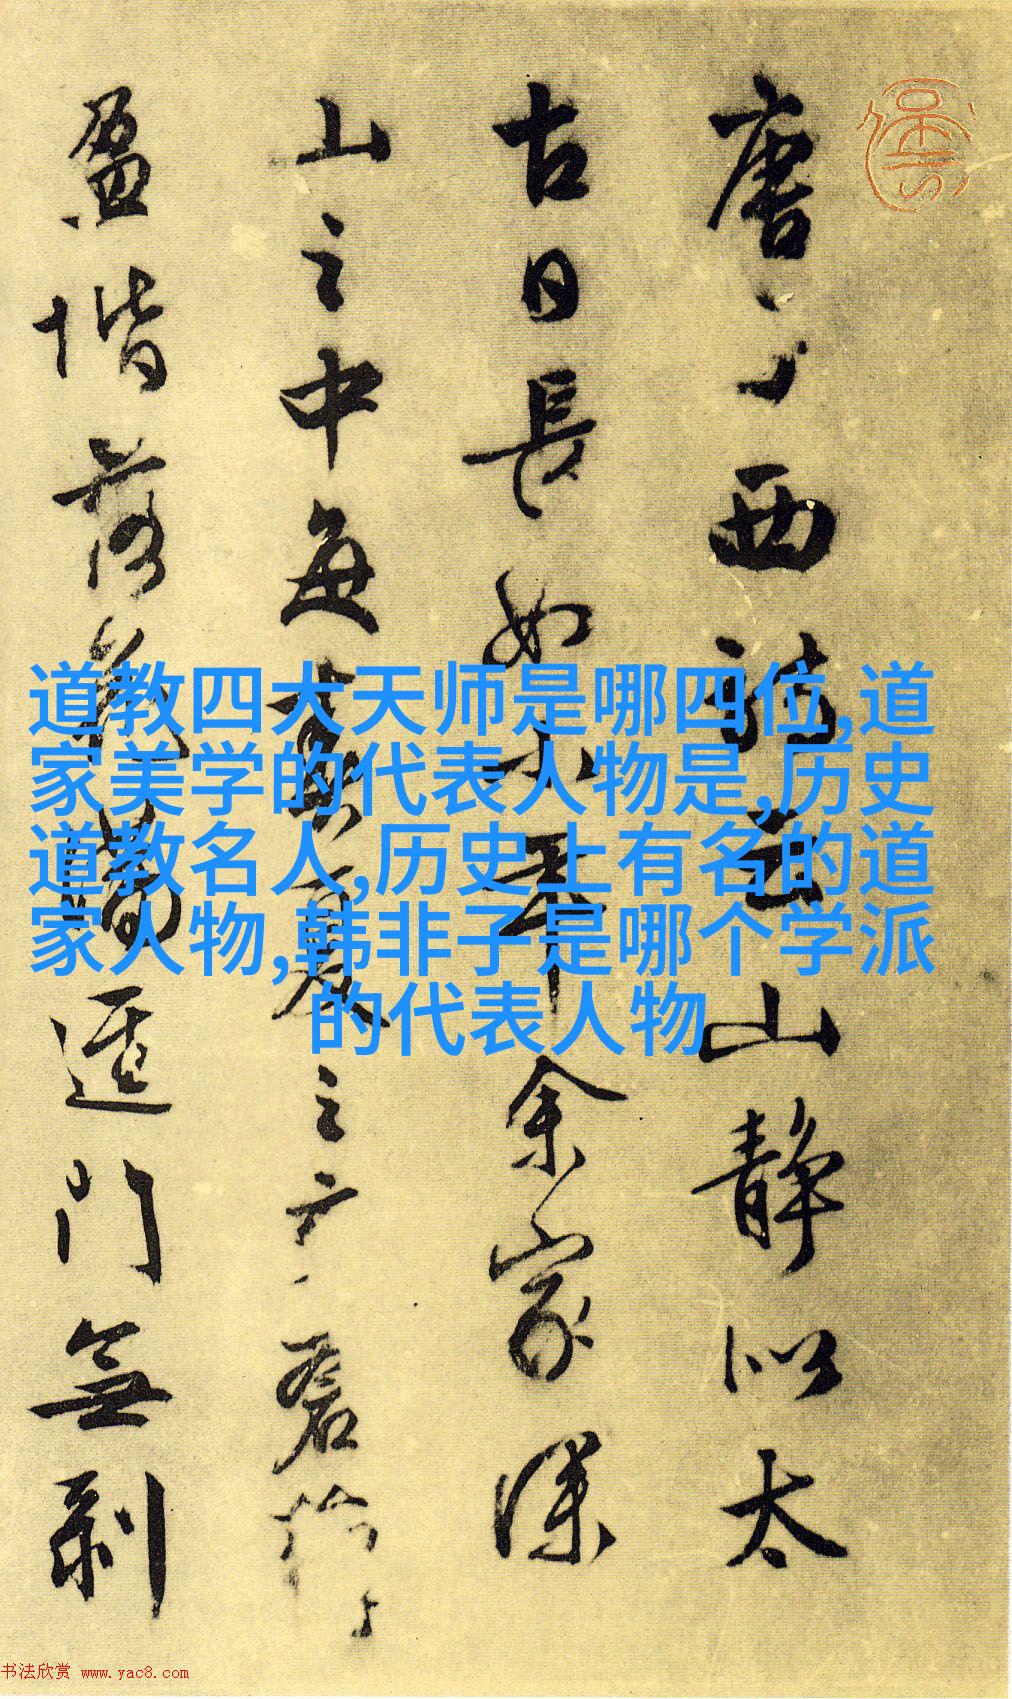 道教四大天师是哪四位,道
家美学的代表人物是,历史
道教名人,历史上有名的道
家人物,韩非子是哪个学派
的代表人物
唐子西詩云山靜似太
古日長如小年余家深
山之中每春夏之交蒼蘚
盈堦落花滿逕門無剥
书法欣赏 www.yac8.com